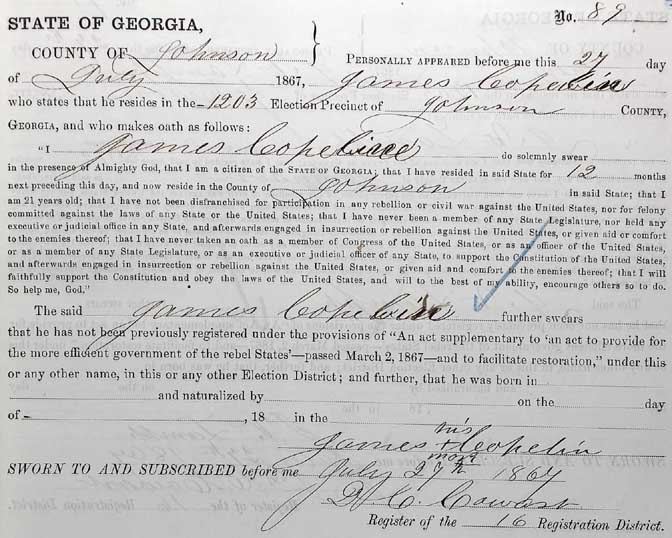 No. 89
STATE OF GEORGIA,
COUNTY OF Johnson } PERSONALLY APPEARED before me this 27 day
of July 1867, James Copelin
who states that he resides in the 1203 Election Precinct of Johnson COUNTY,
GEORGIA, and who makes oath as follows:
"I James Copeline do solemnly swear
in the presence of Almighty God, that I am a citizen of the STATE OF GEORGIA, that I have resided in said State for 12 months
next preceding this day, and now reside in the County of Johnson in said State; that I
am 21 years old; that I have not been disfranchised for participation in any rebellion or civil war against the United States, nor for felony
committed against the laws of any State or the United States; that I have never been a member of any State Legislature, nor held any
executive or judicial office in any State, and afterwards engaged in insurrection or rebellion against the United States, or given aid or comfort
to the enemies thereof; that I have never taken an oath as a member of Congress of the United States, or as an officer of the United States,
or as a member of any State Legislature, or as an executive or judicial officer of any State, to support the Constitution of the United States,
and afterwards engaged in insurrection or rebellion against the United States, or given aid and comfort to the enemies thereof; that I will
faithfully support the Constitution and obey the laws of the United States, and will to the best of my ability, encourage others so to do.
So help me, God."
The said James Copelin further swears
that he has not been previously registered under the provisions of "An act supplementary to 'an act to provide for
the more efficient government of the rebel States'—passed March 2, 1867—and to facilitate restoration," under this
or any other name, in this or any other Election District; and further, that he was born in
and naturalized by on the day
of , 18 in the
his
James + Copelin
mark
SWORN TO AND SUBSCRIBED before me July 27th 1867
D. C. Cowart
Register of the 16 Registration District.